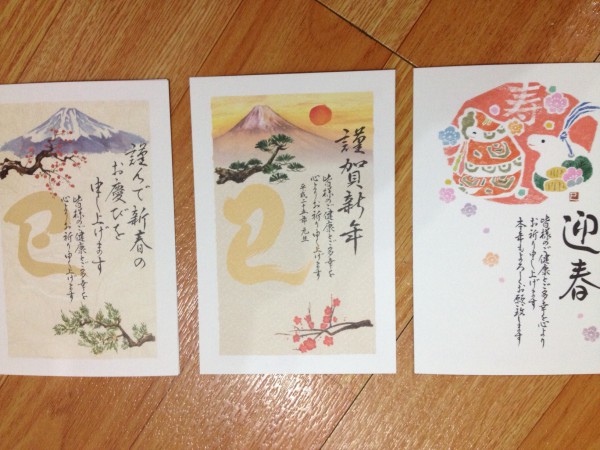 謹んで新春の
お慶びを
申し上げます
皆様のご健康とご多幸を
心よりお祈り申し上げます
巳
謹賀新年
平成二十五年 元旦
皆様のご健康とご多幸を
心よりお祈り申し上げます
巳
寿
迎春
皆様のご健康とご多幸を心より
お祈り申し上げます
本年もよろしくお願い致します